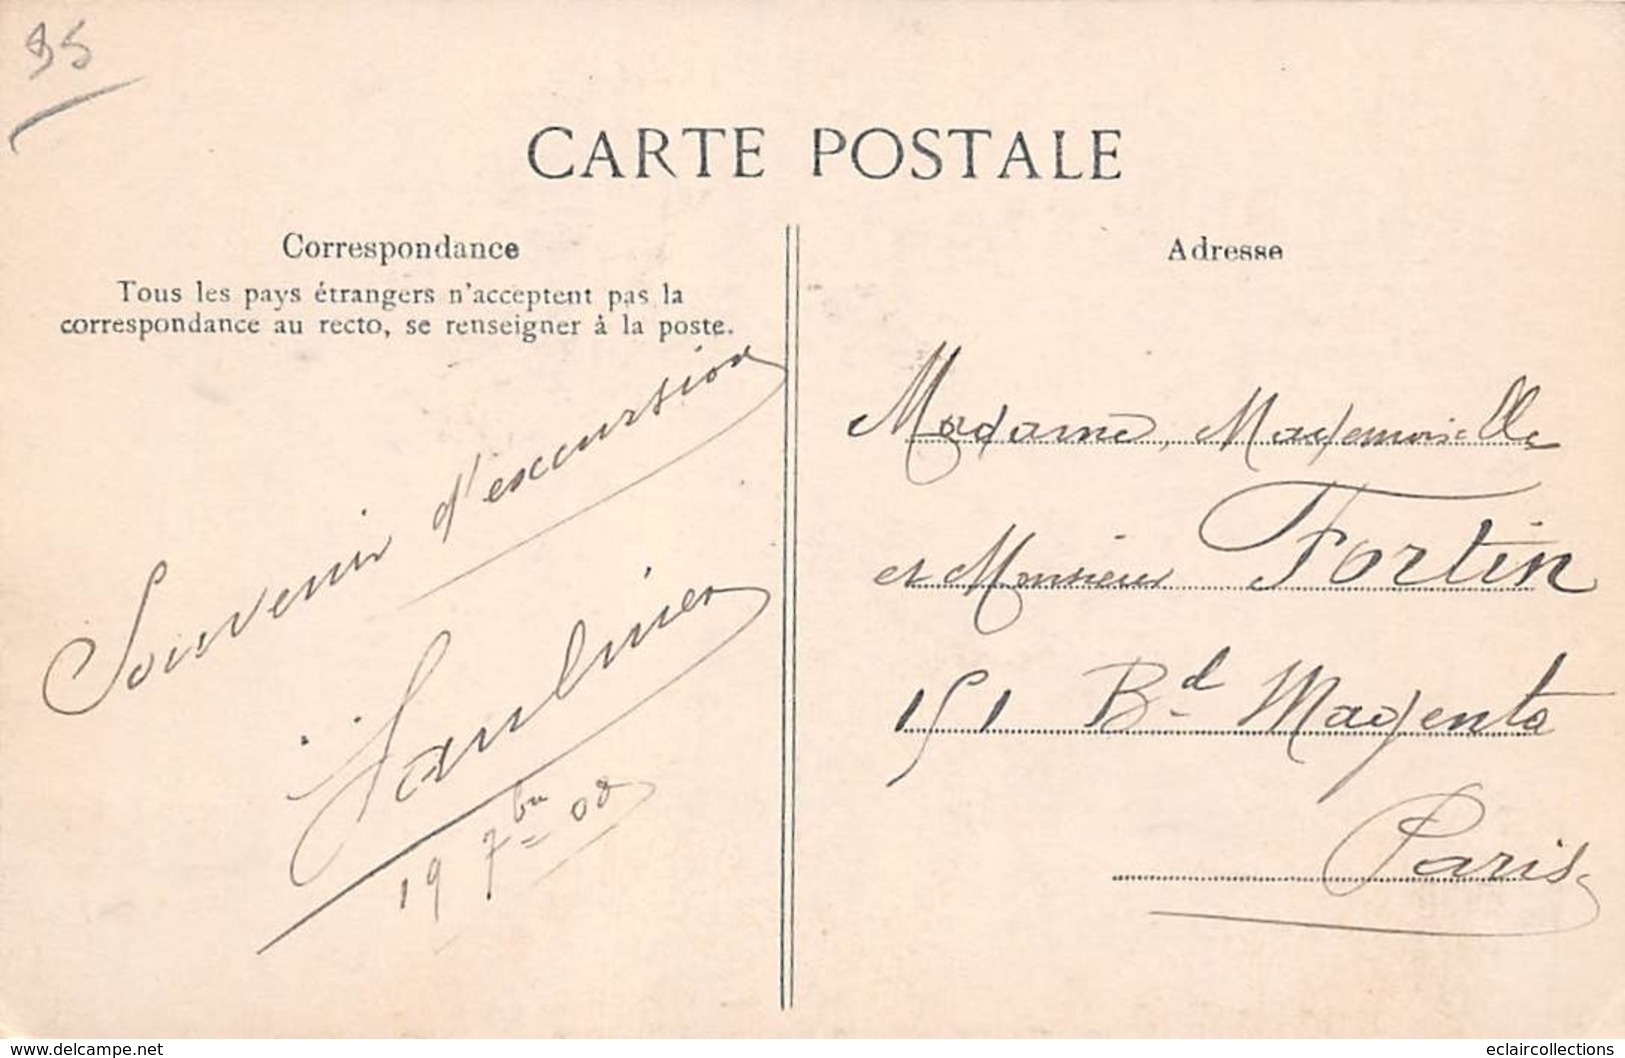 95
CARTE POSTALE
Correspondance
Tous les pays étrangers n'acceptent pas la
correspondance au recto, se renseigner à la poste.
Souvenir d'excursion
Saulnier
19 7bre 08
Adresse
Madame, Mademoiselle
et Monsieur Fortin
151 Bd Magenta
Paris
www.delcampe.net
eclaircollections